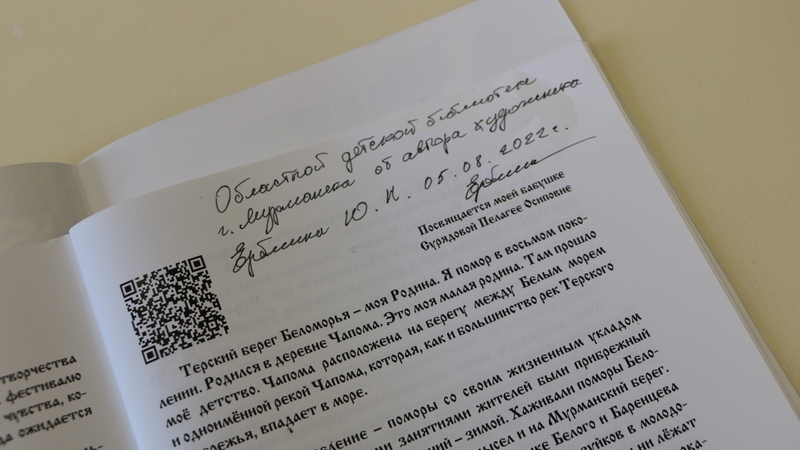 Областной детской библиотеки
г. Мурманска от автора художника
Ерёмина Ю. Н. 05.08.2022г.
Посвящается моей бабушке
Сурядовой Пелагее Осиповне
Терский берег Беломорья – моя Родина. Я помор в восьмом поко-
лении. Родился в деревне Чапома. Это моя малая родина. Там прошло
моё детство. Чапома расположена на берегу между Белым морем
и одноимённой рекой Чапома, которая, как и большинство рек Терского
впадает в море.
– поморы со своим жизненным укладом
занятиями жителей были прибрежный
– зимой. Хаживали поморы Бело-
и на Мурманский берег.
Белого и Баренцева
в молодо-
ни лежат
творчества
фестивалю
чувства, ко-
ожидается